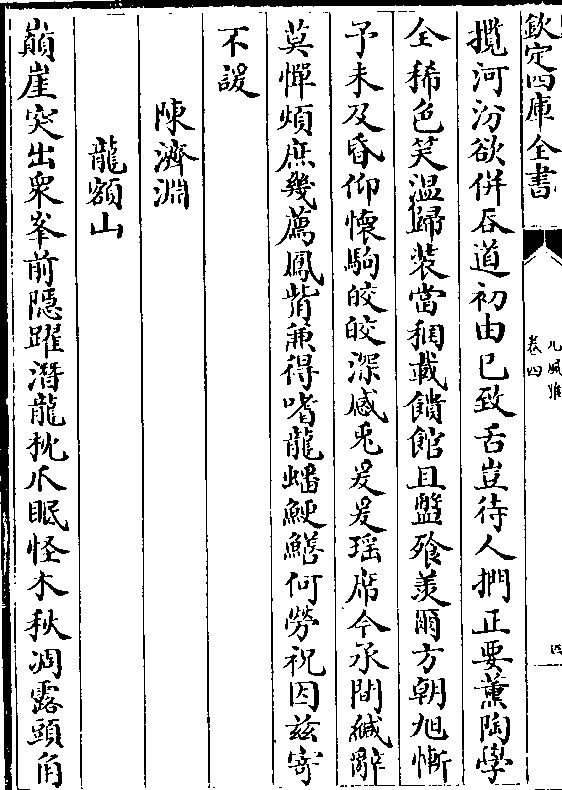 欽定四庫全書
元風雅
卷四
四
攬河汾欲併吞道初由已致舌豈待人捫正要薰陶學
全稀色笑温歸裝當稛載饋館且盤飱羨爾方朝旭慚
予未及昏仰懷駒皎皎深感兎爰爰瑶席今承間緘辭
莫憚煩庶幾薦鳳觜兼得嗜龍蟠鯁鱔何勞祝因兹寄
不諼
陳濟淵
龍額山
巔崖突出衆峯前隱躍潛龍枕爪眠怪木秋凋露頭角